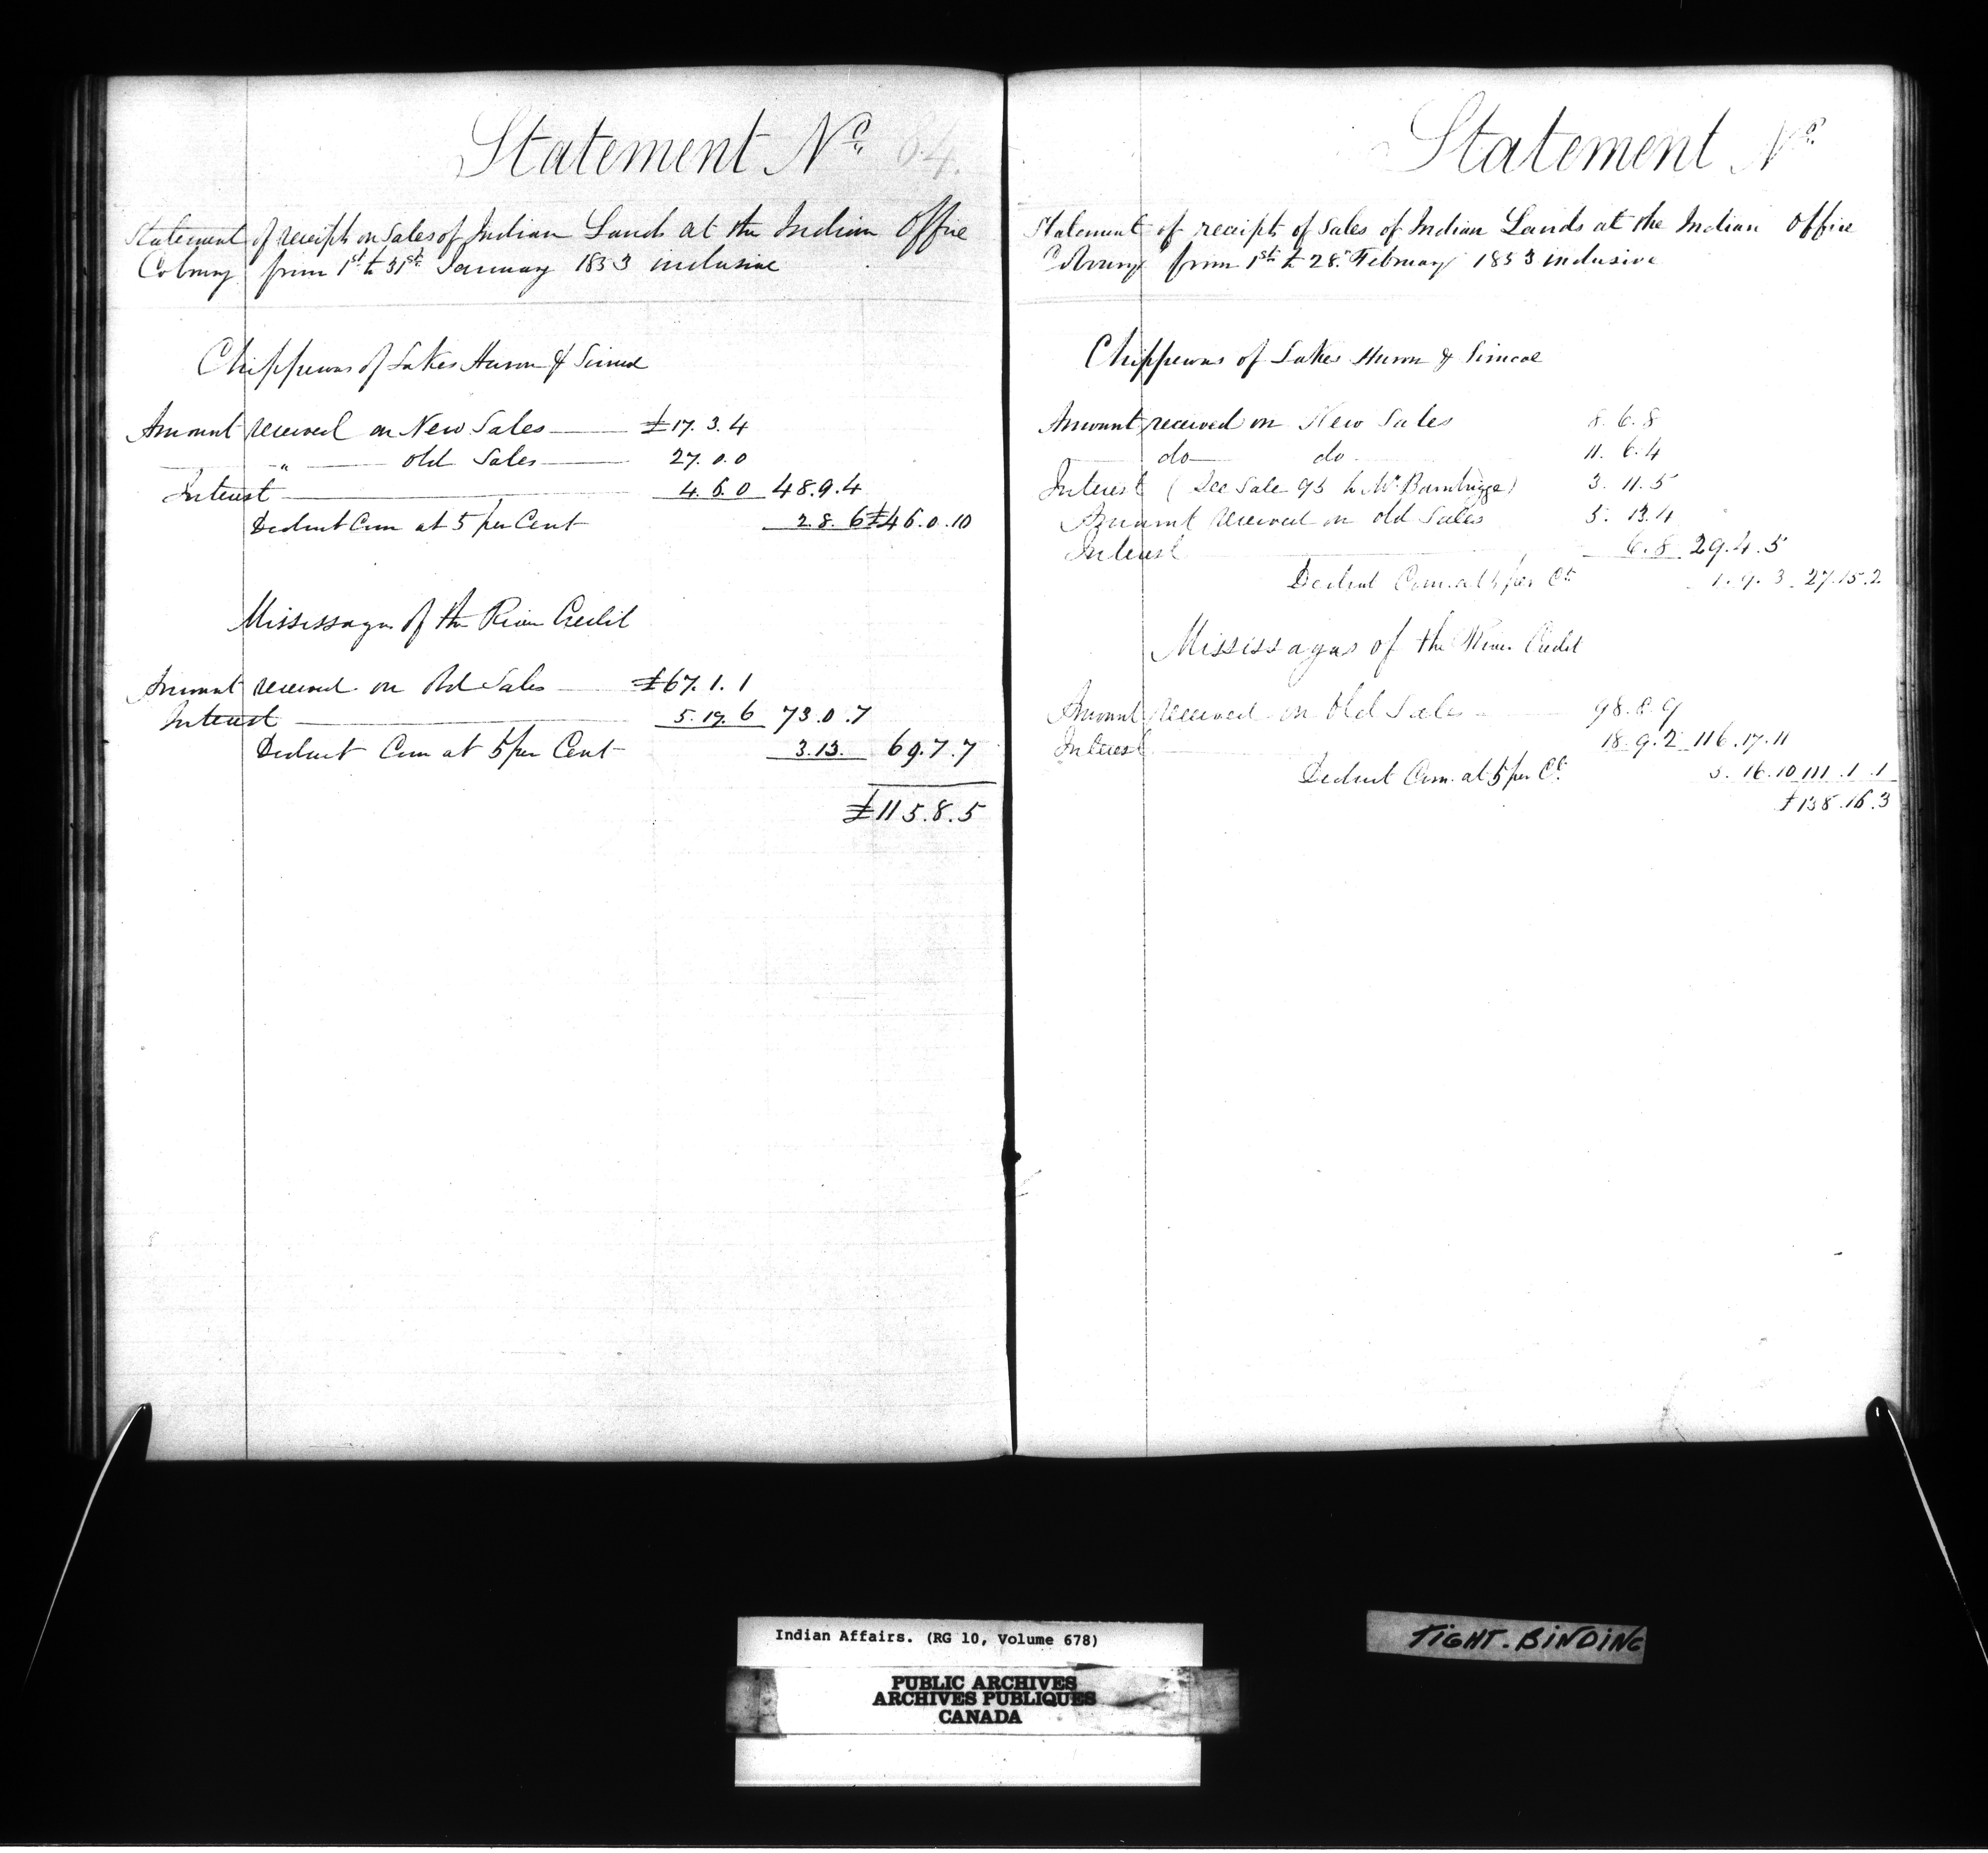 Statement No. 64.
Statement of receipts on Sales of Indian Lands at the Indian Office
Cobourg from 1st to 31st January 1853 inclusive
Chippewas of Lakes Huron & Simcoe
Amount received on New Sales £17.3.4
" old Sales 27.0.0
Interest 4.6.0 48.9.4
Deduct Com at 5 per Cent 2.8.6 £46.0.10
Mississagas of the River Credit
Amount received on Old Sales £67.1.1
Interest 5.19.6 73.0.7
Deduct Com at 5 per Cent 3.13. 69.7.7
£115.8.5
Statement No.
Statement of receipts of Sales of Indian Lands at the Indian Office
Cobourg from 1st to 28th February 1853 inclusive
Chippewas of Lakes Huron & Simcoe
Amount received on New Sales 8.6.8
do do 11.6.4
Interest (See Sale 95 to Mr. Bambrigge) 3.11.5
Amount received on old Sales 5.13.4
Interest 6.8 29.4.5
Deduct Com. at 5 per Ct. 1.9.3 27.15.2
Mississagas of the River Credit
Amount received on Old Sales 98.8.9
Interest 18.9.2 116.17.11
Deduct Com. at 5 per Ct. 5.16.10 111.1.1
£138.16.3
Indian Affairs. (RG 10, Volume 678)
PUBLIC ARCHIVES
ARCHIVES PUBLIQUES
CANADA
TIGHT. BINDING